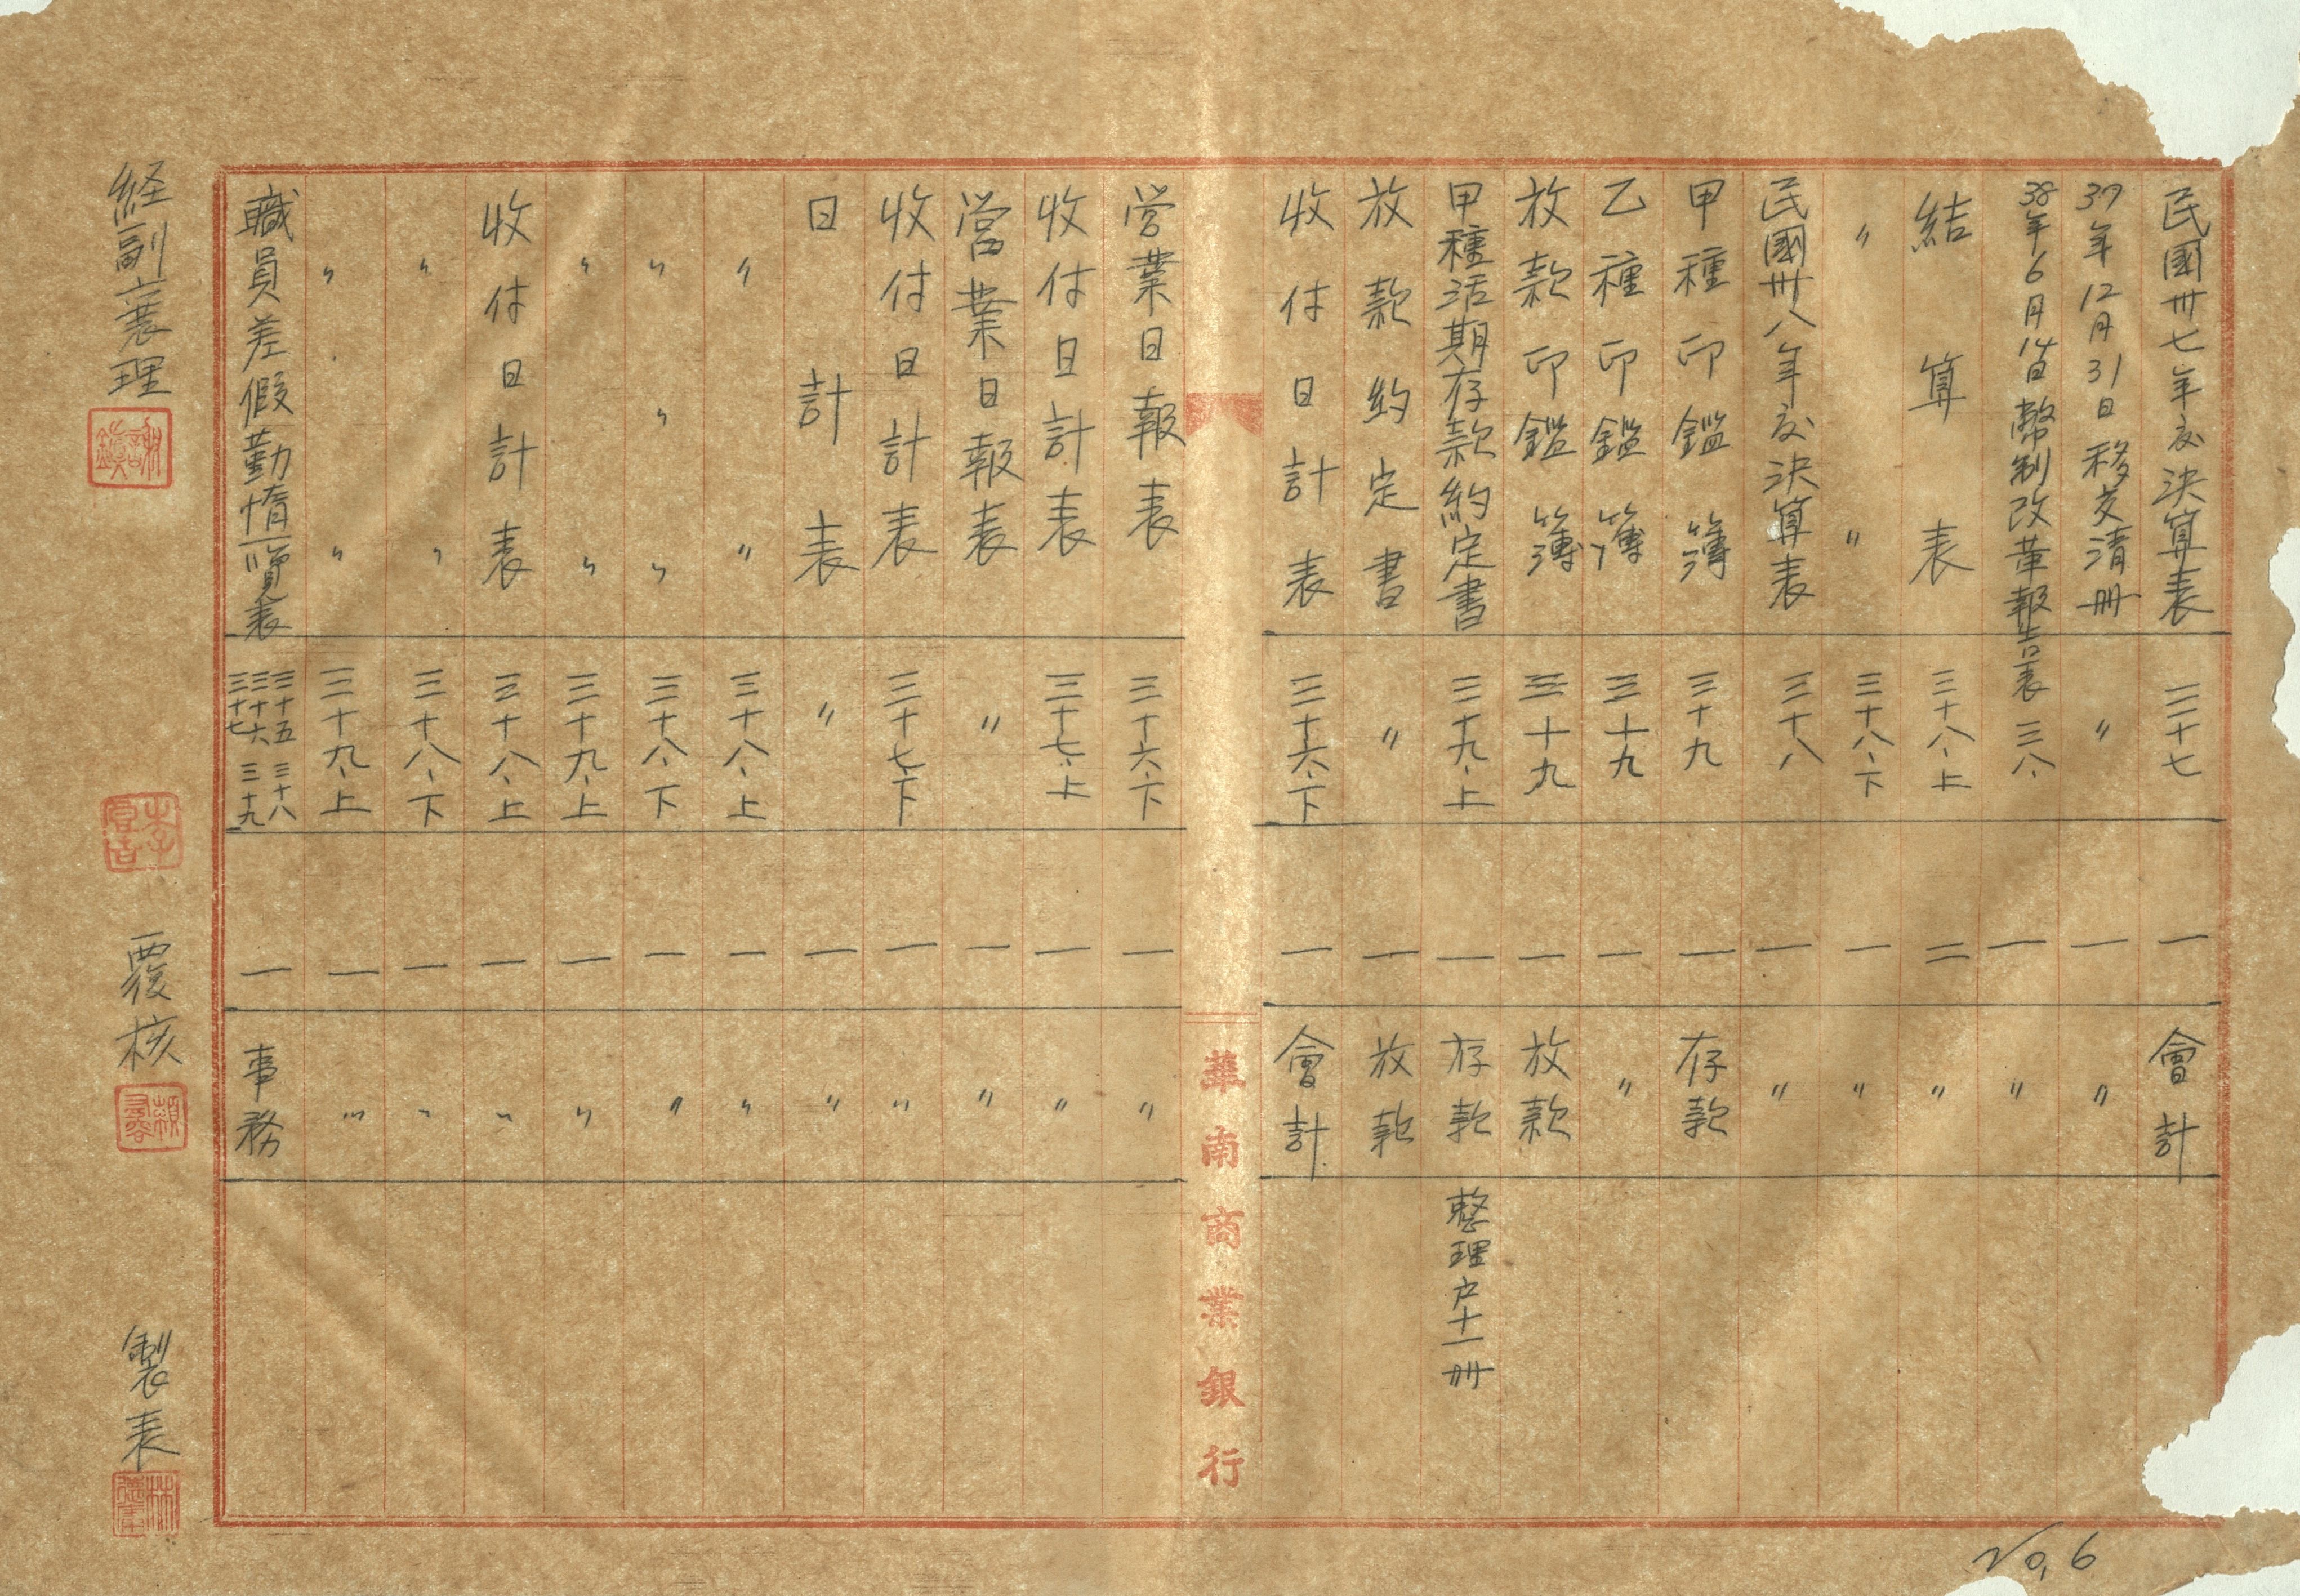 民國卅七年度決算表 三十七 一 會計
37年12月31日移交清冊 〃 一 〃
38年6月14日幣制改革報告表 三八、 一 〃
結算表 三十八、上 二 〃
〃 〃 三十八、下 一 〃
民國卅八年度決算表 三十八 一 〃
甲種印鑑簿 三十九 一 存款
乙種印鑑簿 三十九 一 〃
放款印鑑簿 三十九 一 放款
甲種活期存款約定書 三十九、上 一 存款 整理户十一冊
放款約定書 〃 一 放款
收付日計表 三十六、下 一 會計
華南商業銀行
営業日報表 三十六、下 一 〃
收付日計表 三十七、上 一 〃
営業日報表 〃 一 〃
收付日計表 三十七、下 一 〃
日計表 〃 一 〃
〃 〃 三十八、上 一 〃
〃 〃 〃 三十八、下 一 〃
〃 〃 三十九、上 一 〃
收付日計表 三十八、上 一 〃
〃 〃 三十八、下 一 〃
〃 〃 三十九、上 一 〃
職員差假勤惰一覽表 三十五 三十六 三十七 三十八 三十九 一 事務
経副襄理
覆核
製表
No.6